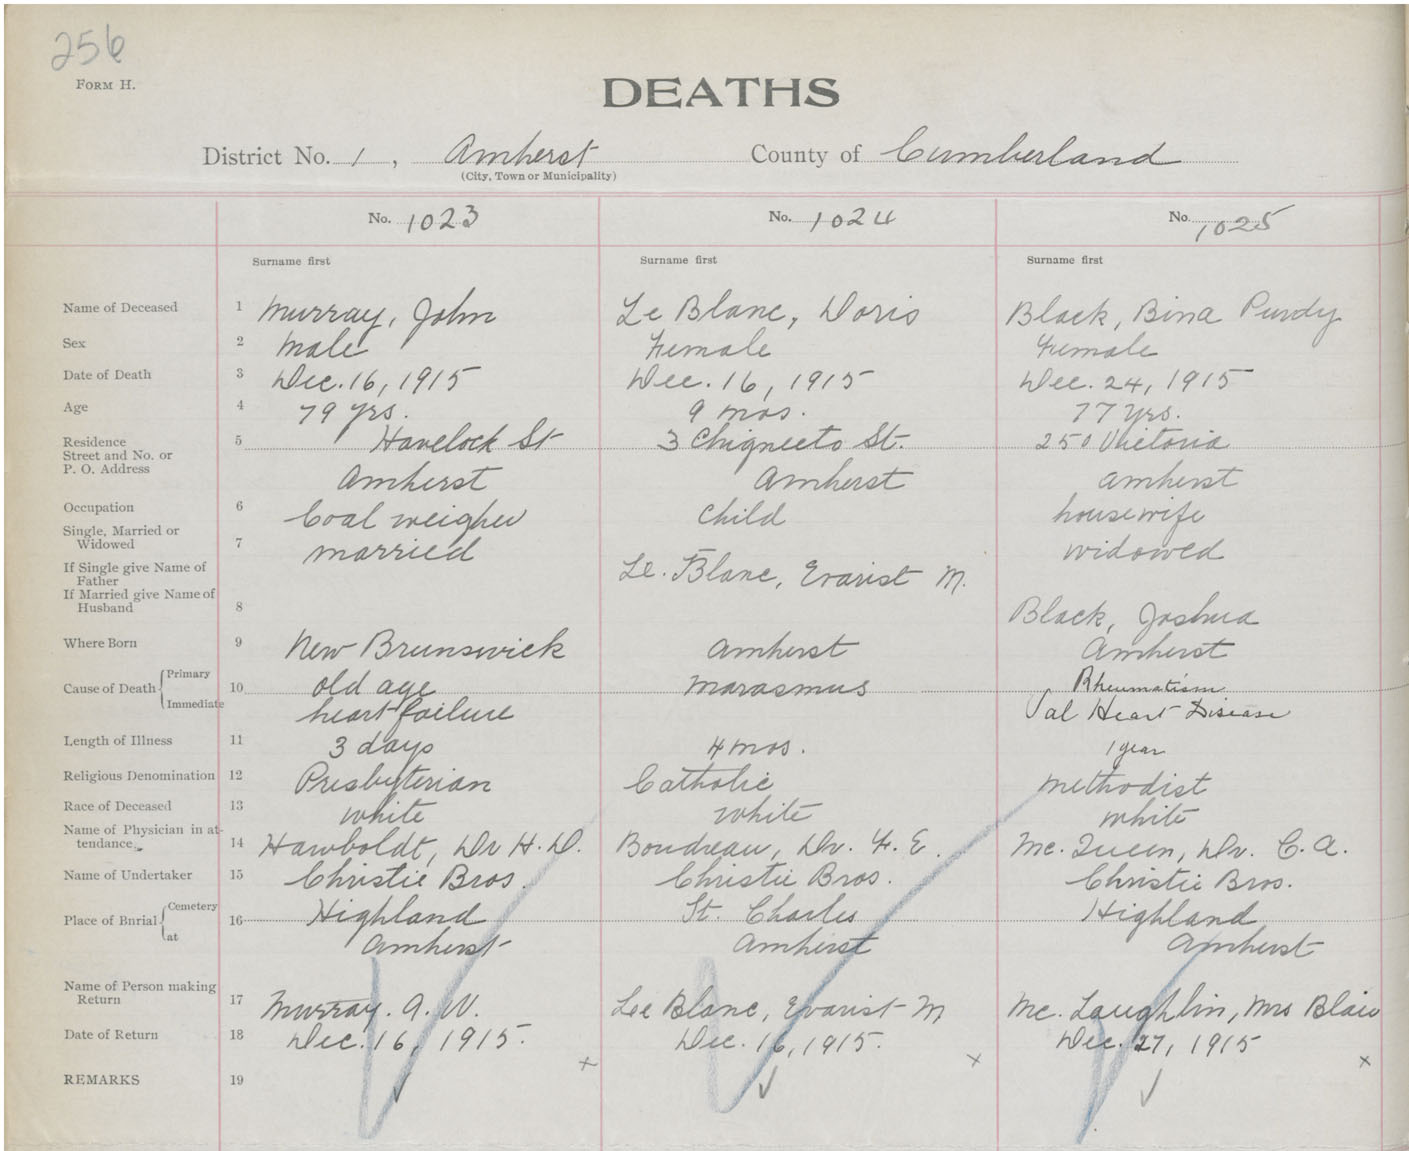 256
FORM H.
DEATHS
District No. 1, Amherst County of Cumberland
(City, Town or Municipality)
No. 1023 No. 1024 No. 1025
Surname first Surname first Surname first
Name of Deceased 1 Murray, John Le Blanc, Doris Black, Bina Purdy
Sex 2 Male Female Female
Date of Death 3 Dec. 16, 1915 Dec. 16, 1915 Dec. 24, 1915
Age 4 79 yrs. 9 mos. 77 yrs.
Residence 5 Havelock St 3 Chignecto St. 250 Victoria
Street and No. or
P. O. Address Amherst Amherst Amherst
Occupation 6 Coal weigher child housewife
Single, Married or
Widowed 7 married widowed
If Single give Name of
Father Le. Blanc, Evarist M.
If Married give Name of
Husband 8 Black, Joshua
Where Born 9 New Brunswick Amherst Amherst
Cause of Death Primary 10 old age marasmus Rheumatism
Immediate heart failure Val Heart Disease
Length of Illness 11 3 days 4 mos. 1 year
Religious Denomination 12 Presbyterian Catholic Methodist
Race of Deceased 13 white white white
Name of Physician in at-
tendance 14 Hawboldt, Dr H. D. Boudreau, Dr. F. E. Mc. Queen, Dr. C. A.
Name of Undertaker 15 Christie Bros. Christie Bros. Christie Bros.
Place of Burial Cemetery 16 Highland St. Charles Highland
at Amherst Amherst Amherst
Name of Person making
Return 17 Murray. A. W. Le Blanc, Evarist M Mc. Laughlin, Mrs Blair
Date of Return 18 Dec. 16, 1915. Dec. 16, 1915. Dec. 27, 1915
REMARKS 19